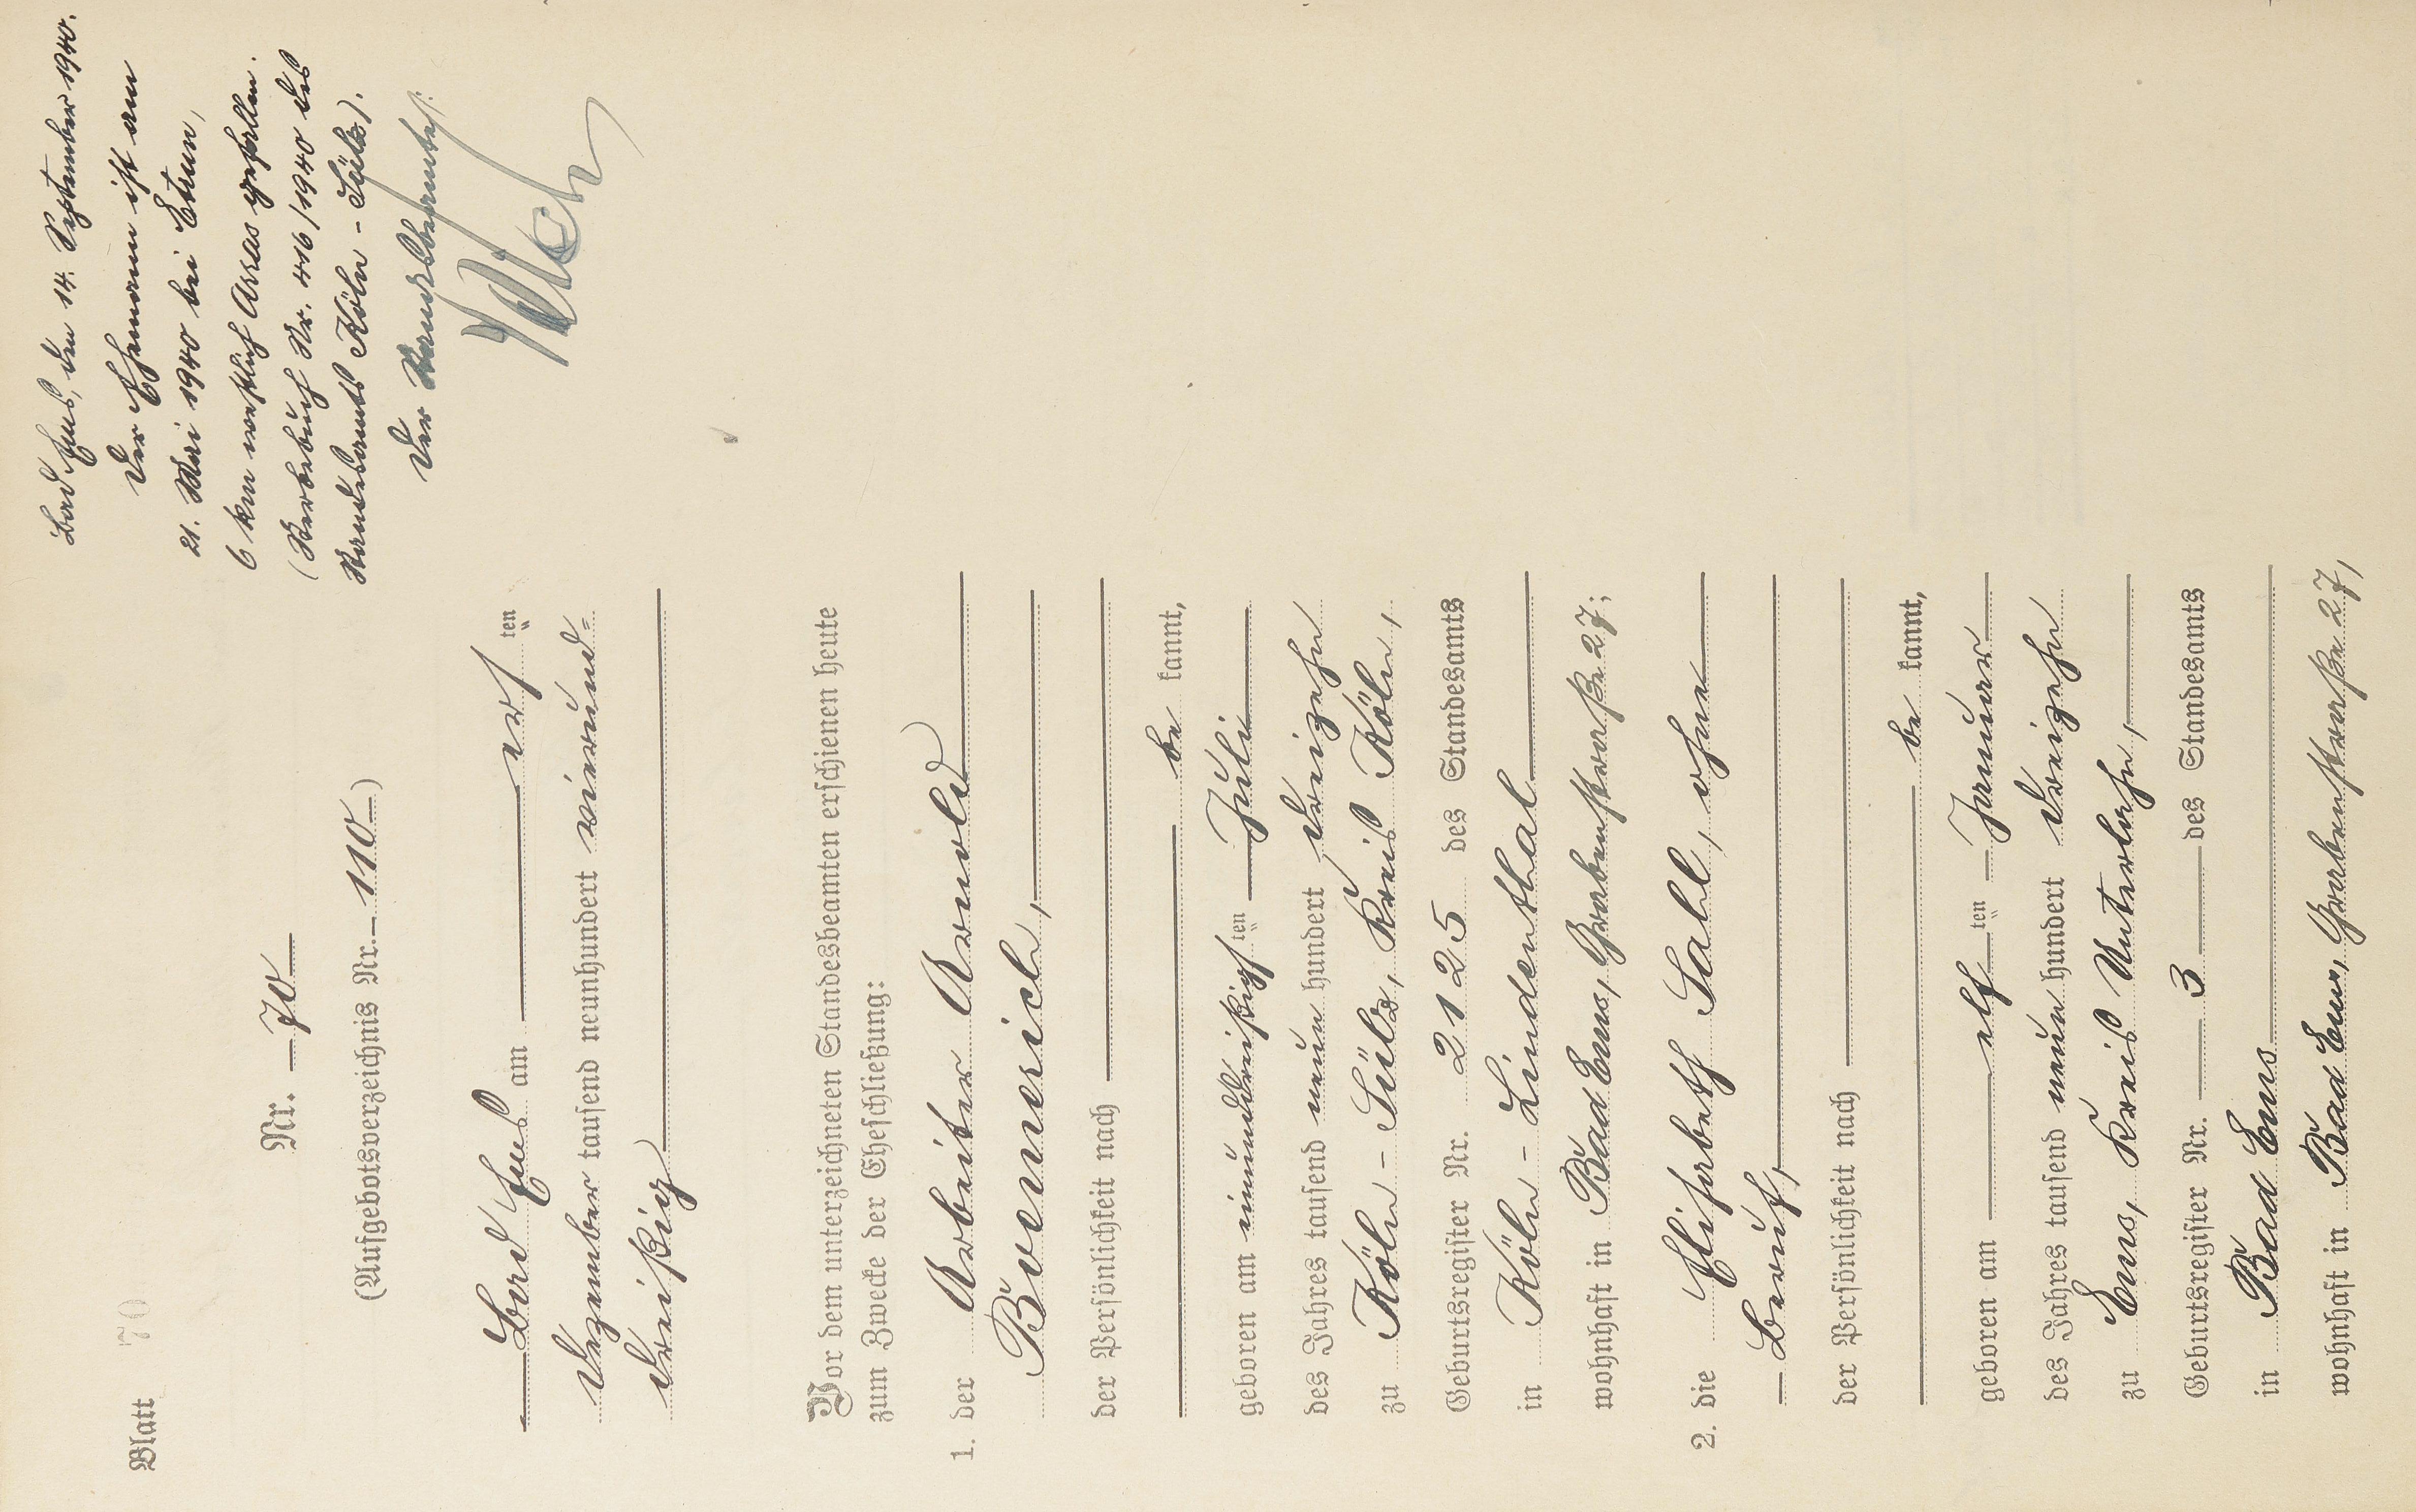 Blatt 70
Nr. 70
(Aufgebotsverzeichnis Nr. 110)
Bad Ems am ersten
Dezember tausend neunhundert vierund=
dreißig
Vor dem unterzeichneten Standesbeamten erschienen heute
zum Zwecke der Eheschließung:
1. der Arbeiter Arnold
Bovenerich,
der Persönlichkeit nach
be kannt,
geboren am einunddreißigsten Juli
des Jahres tausend neun hundert dreizehn
zu Köln - Sülz, Kreis Köln,
Geburtsregister Nr. 2125 des Standesamts
in Köln - Lindenthal
wohnhaft in Bad Ems, Grabenstraße 27;
2. die Elisabeth Sall, ohne
Beruf,
der Persönlichkeit nach
be kannt,
geboren am elften Januar
des Jahres tausend neun hundert dreizehn
zu Ems, Kreis Unterlahn,
Geburtsregister Nr. 3 des Standesamts
in Bad Ems
wohnhaft in Bad Ems, Grabenstraße 27,
Bad Ems, den 14. September 1940.
Der Ehemann ist am
21. Mai 1940 bei Etrun,
6 km westlich Arras gefallen.
(Sterbebuch Nr. 416/1940 des
Standesamts Köln - Sülz).
Der Standesbeamte: